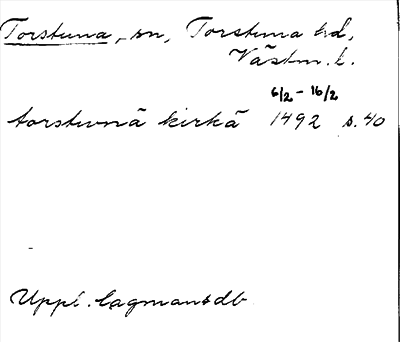 Torstuna, sn, Torstuna hd,
Västm. l.
6/2 - 16/2
torstunä kirkä 1492 s. 40
Uppl. lagmansdb